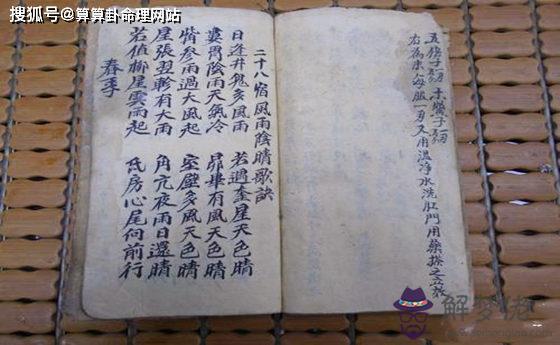 搜狐号@算算卦命理网站
五倍子
右為末每服一
又用溫淨水洗肛門用藥搽之立效
二十八宿風雨陰晴歌訣
日逢井鬼多風雨 若遇奎星天色晴
婁胃陰雨天氣冷 昴畢有風天色晴
參雨過大風起 室壁多風天色晴
張翌軫有大雨 角亢夜雨日還晴
若值柳星雲雨起 氐房心尾向前行
春季
解梦佬